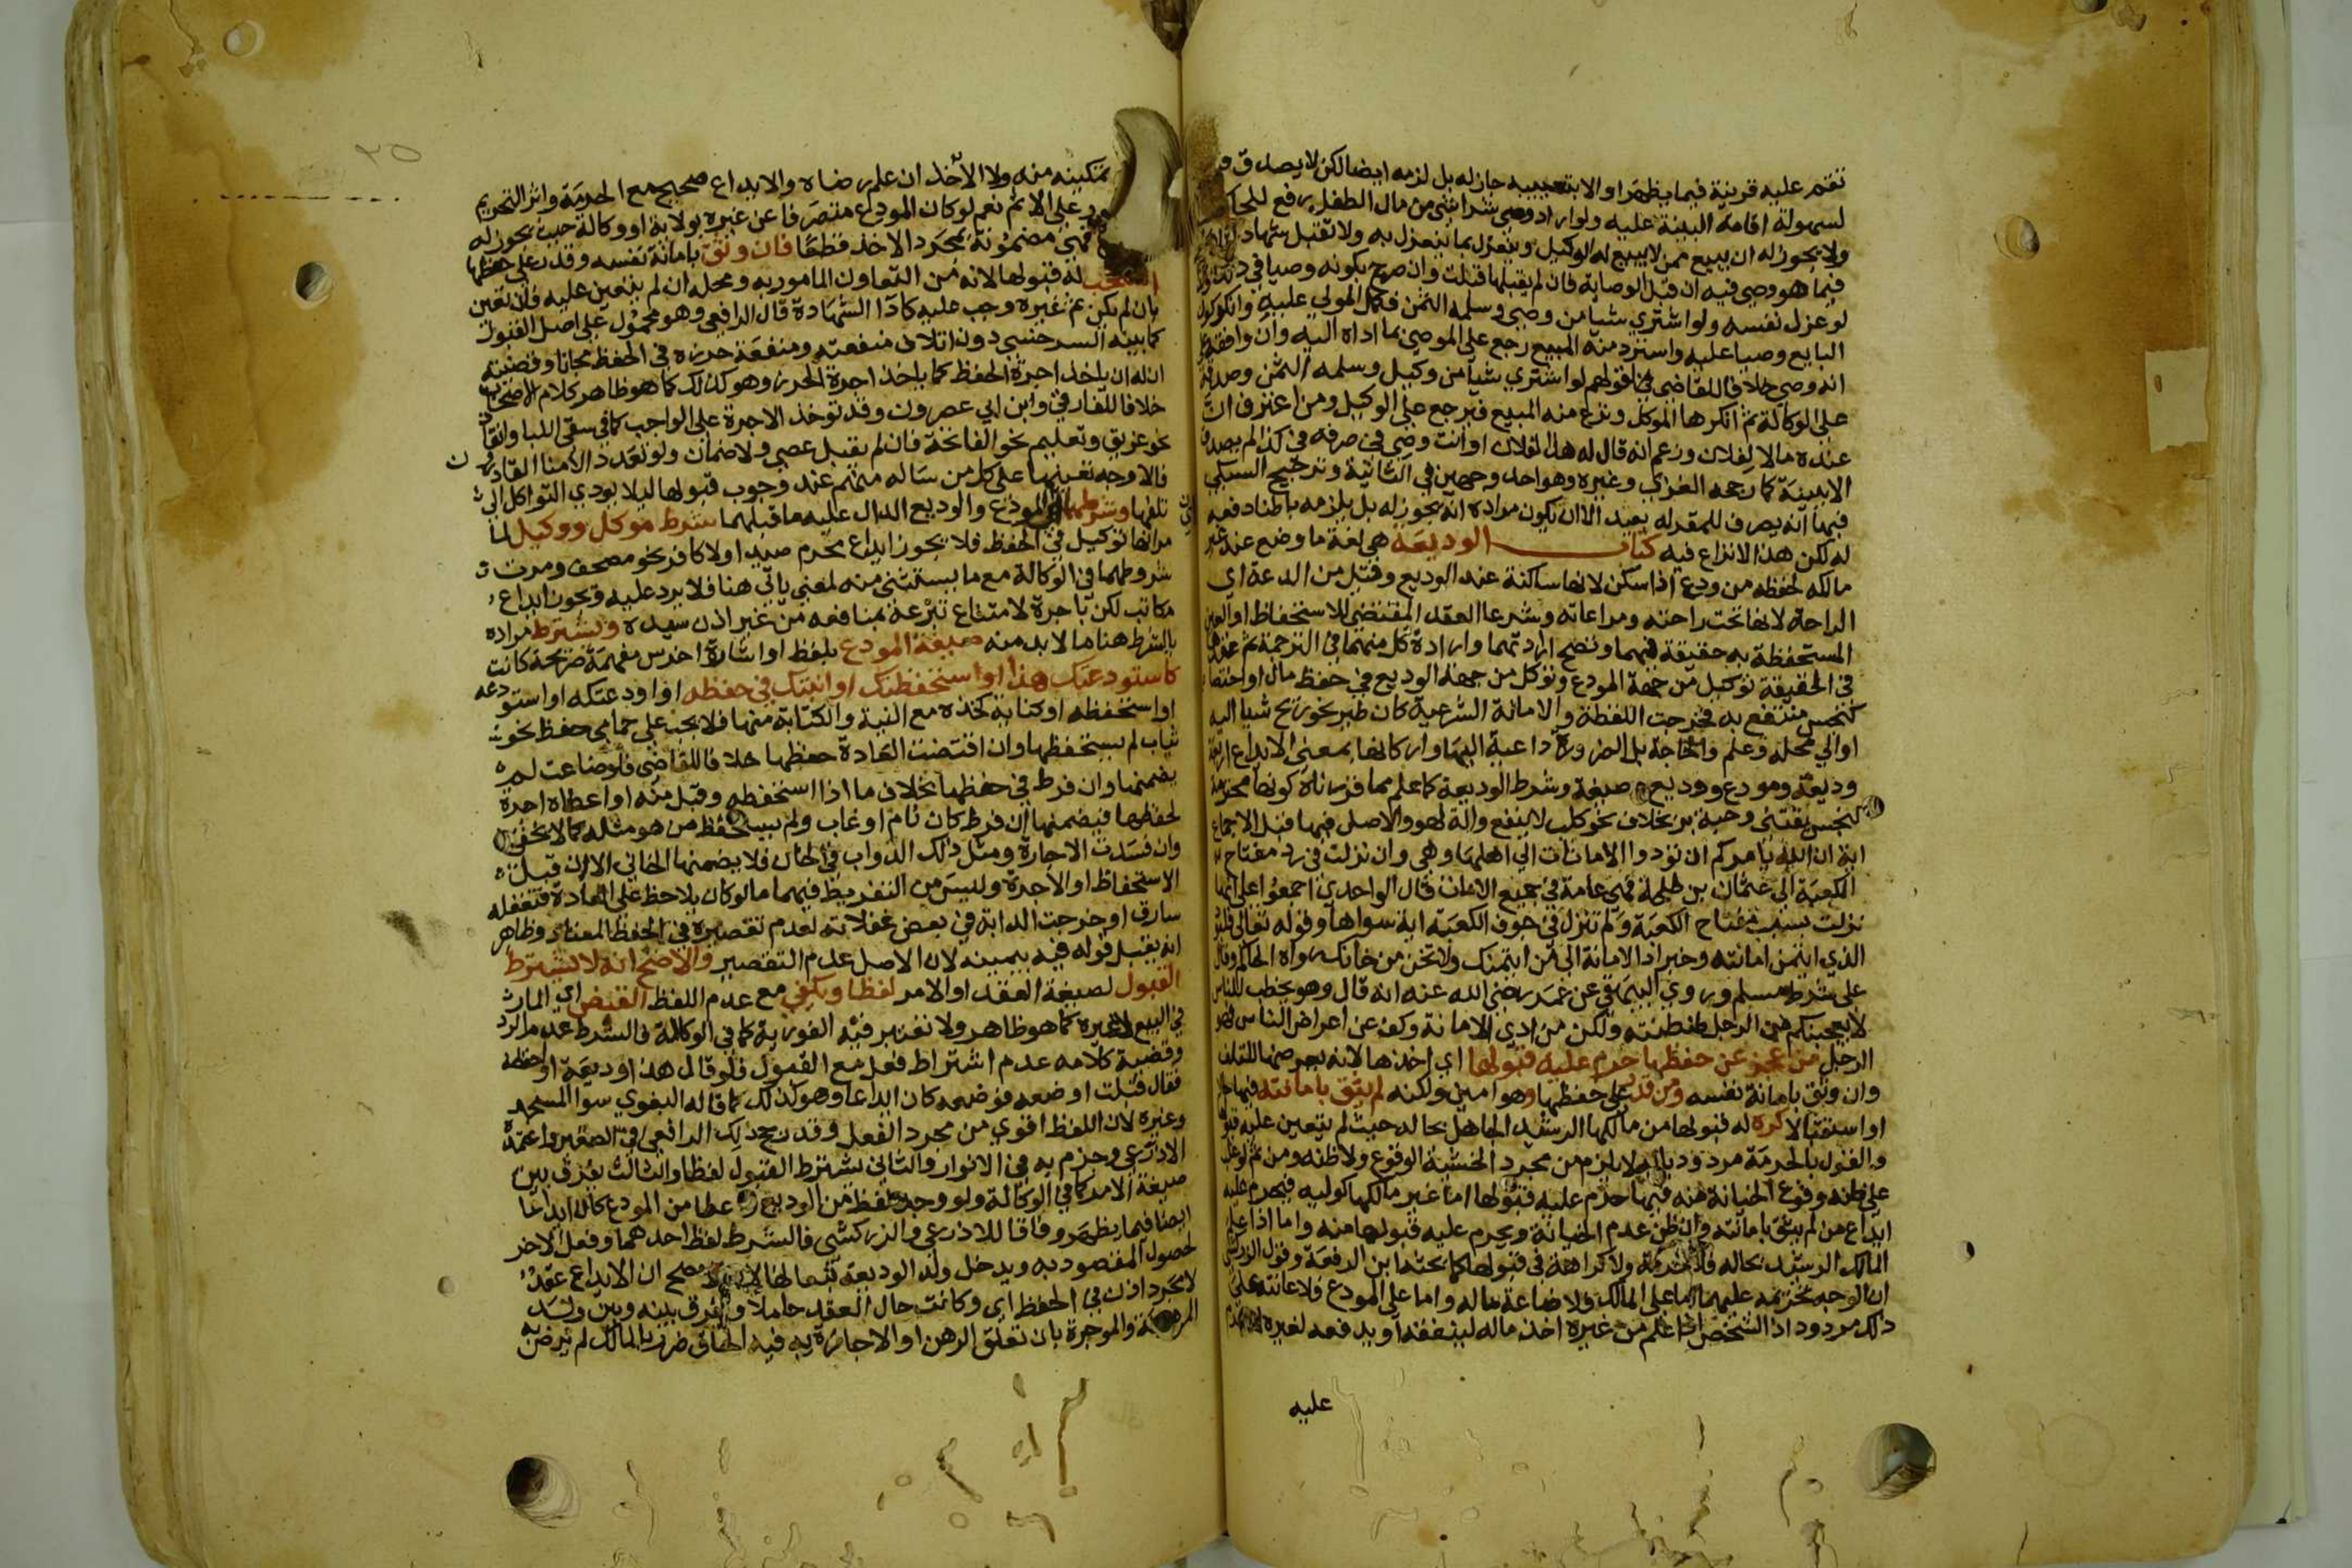 تقم عليه قرينة فيما يظهر او الا بتعييبه جاز له بل لزمه ايضا لكن لا يصدق
لسهولة اقامة البينة عليه ولو اراد وصي شرا شي من مال الطفل رفع للحاكم
ولا يجوز له ان يبيع ممن لا يبيع له الوكيل وينعزل بما ينعزل به ولا تقبل شهادته
فيما هو وصي فيه ان قبل الوصاية فان لم يقبلها قبلت وان صرح بكونه وصيا في
لو عزل نفسه ولو اشتري شيا من وصي وسلمه الثمن فكمل المولي عليه وانكر كون
البايع وصيا عليه واسترد منه المبيع رجع على الموصي بما اداه اليه وان وافقه
انه وصي خلافا للقاضي قولهم لو اشتري شيا من وكيل وسلمه الثمن وصدقه
على الوكالة ثم انكرها الموكل ونزع منه المبيع فيرجع على الوكيل ومن اعترف ان
عنده مالا لفلان وزعم انه قال له هذا لفلان او انت وصي في صرفه في كذا لم يصدق
الا ببينة كما رجحه الغزي وغيره وهو احد وجهين في الثانية وترجيح السبكي
فيها انه يصرف للمقر له بعيد الا ان يكون مراده انه يجوز له بل يلزمه باطنا دفعه
له لكن هذا لا نزاع فيه كتاب الوديعة هي لغة ما وضع عند غير
مالكه لحفظه من ودع اذا سكن لانها ساكنة عند الوديع وقيل من الدعة اي
الراحة لانها تحت راحته ومراعاته وشرعا العقد المقتضي للاستحفاظ او العين
المستحفظة به حقيقة فيهما وتصح ارادتهما وارادة كل منهما في الترجمة ثم عقدها
في الحقيقة توكيل من جهة المودع وتوكل من جهة الوديع في حفظ مال او اختصاص
كنجس منتفع به فخرجت اللقطة والامانة الشرعية كان طير نحو ريح شيا اليه
او الي محله وعلم والحاجة بل الضرورة داعية اليها واركانها بمعني الايداع اربعة
وديعة ومودع ووديع وصيغة وشرط الوديعة كما علم مما قررناه كونها محترمة
كنجس يقتني وحبة بر بخلاف نحو كلب لا ينفع والة لهو والاصل فيها قبل الاجماع
اية ان الله يامركم ان تؤدوا الامانات الي اهلها وهي وان نزلت في رد مفتاح
الكعبة الي عثمان بن طلحة فهي عامة في جميع الامانات قال الواحدي اجمعوا على انها
نزلت بسبب مفتاح الكعبة ولم تنزل في جوف الكعبة اية سواها وقوله تعالى فليؤد
الذي ائتمن امانته وخبر اد الامانة الي من ائتمنك ولا تخن من خانك رواه الحاكم وقال
على شرط مسلم وروي البيهقي عن عمر رضي الله عنه انه قال وهو يخطب للناس
لا يعجبنكم من الرجل طنطنته ولكن من ادي الامانة وكف عن اعراض الناس فهو
الرجل من عجز عن حفظها حرم عليه قبولها اي اخذها لانه يعرضها للتلف
وان وثق بامانة نفسه ومن قدر على حفظها وهو امين ولكنه لم يثق بامانته فيها حالا
او استقبالا كره له قبولها من مالكها الرشيد الجاهل بحاله حيث لم يتعين عليه
والقول بالحرمة مردود بانه لا يلزم من مجرد الخشية الوقوع ولا ظنه ومن ثم لو غلب
على ظنه وقوع الخيانة منه فيها حرم عليه قبولها اما غير مالكها كوليه فيحرم عليه
ايداع من لم يثق بامانته وان ظن عدم الخيانة ويحرم عليه قبولها منه واما اذا علم
المالك الرشيد بحاله فلا حرمة ولا كراهة في قبولها كما بحثه ابن الرفعة وقول الزركشي
ان الوجه تحريمه عليهما اما على المالك ولاضاعة ماله واما على المودع فلاعانته على
ذلك مردود اذ الشخص اذا علم من غيره اخذ ماله لينفقه او يدفعه لغيره
عليه
تمكينه منه ولا الاخذ ان علم رضاه والايداع صحيح مع الحرمة واثر التحريم
على الاثم نعم لو كان المودع متصرفا عن غيره بولاية او وكالة حيث يجوز له
فهي مضمونة بمجرد الاخذ قطعا فان وثق بامانة نفسه وقدر على حفظها
استحب له قبولها لانه من التعاون المامور به ومحله ان لم يتعين عليه فان تعين
بان لم يكن ثم غيره وجب عليه كادا الشهادة قال الرافعي وهو محمول على اصل القبول
كما بينه السرخسي دون اتلاف منفعته ومنفعة حرزه في الحفظ مجانا وقضيته
ان له ان ياخذ اجرة الحفظ كما ياخذ اجرة الحرز وهو كذلك كما هو ظاهر كلام الاصحاب
خلافا للفارقي وابن ابي عصرون وقد توخذ الاجرة على الواجب كما في سقي اللبا وانقاذ
نحو غريق وتعليم نحو الفاتحة فان لم يقبل عصي ولا ضمان ولو تعدد الامنا القادرون
فالاوجه تعينها على كل من ساله منهم عند وجوب قبولها ليلا يودي التواكل الي
تلفها وشرطهما اي المودع والوديع الدال عليه ما قبلهما شرط موكل ووكيل لما
مر انها توكيل في الحفظ فلا يجوز ايداع محرم صيدا ولا كافر نحو مصحف ومرت
شروطهما في الوكالة مع ما يستثني منه لمعني ياتي هنا فلا يرد عليه ويجوز ايداع
مكاتب لكن باجرة لامتناع تبرعه بمنافعه من غير اذن سيده ويشترط مراده
بالشرط هنا ما لا بد منه صيغة المودع بلفظ او اشارة اخرس مفهمة صريحة كانت
كاستودعتك هذا او استحفظتك او انبتك في حفظه او اودعتكه او استودعه
او استحفظه او كناية كخذه مع النية والكتابة منها فلا يجب على حمامي حفظ نحو
ثياب لم يستحفظها وان اقتضت العادة حفظها خلافا للقاضي فلو ضاعت لم
يضمنها وان فرط في حفظها بخلاف ما اذا استحفظه وقبل منه او اعطاه اجرة
لحفظها فيضمنها ان فرط كان نام او غاب ولم يستحفظ من هو مثله كما لا يخفي
وان فسدت الاجارة ومثل ذلك الدواب في الخان فلا يضمنها الخاني الا ان قبل
الاستحفاظ او الاجرة وليس من التفريط فيهما ما لو كان يلاحظ على العادة فتغفله
سارق او خرجت الدابة في بعض غفلاته لعدم تقصيره في الحفظ المعتاد وظاهر
انه يقبل قوله فيه بيمينه لان الاصل عدم التقصير والاصح انه لا يشترط
القبول لصيغة العقد او الامر لفظا ويكفي مع عدم اللفظ القبض اي المار
في البيع لا غيره كما هو ظاهر ولا تعتبر فيه الفورية كما في الوكالة فالشرط عدم الرد
وقضية كلامه عدم اشتراط فعل مع القبول فلو قال هذا وديعة او احفظه
فقال قبلت او ضعه فوضعه كان ايداعا وهو كذلك كما قاله البغوي سوا المسجد
وغيره لان اللفظ اقوي من مجرد الفعل وقد رجح ذلك الرافعي في الصغير واعتمده
الاذرعي وجزم به في الانوار والثاني يشترط القبول لفظا والثالث يفرق بين
صيغة الامر كما في الوكالة ولو وجد لفظ من الوديع واعطا من المودع كان ايداعا
ايضا فيما يظهر وفاقا للاذرعي والزركشي فالشرط لفظ احدهما وفعل الاخر
لحصول المقصود به ويدخل ولد الوديعة تبعا لها ان الايداع عقد
لا مجرد اذن في الحفظ اي وكانت حال العقد حاملا والفرق بينه وبين ولد
المرهونة والموجرة بان تعلق الرهن او الاجارة به فيه الحاق ضرر بالمالك لم يرض به